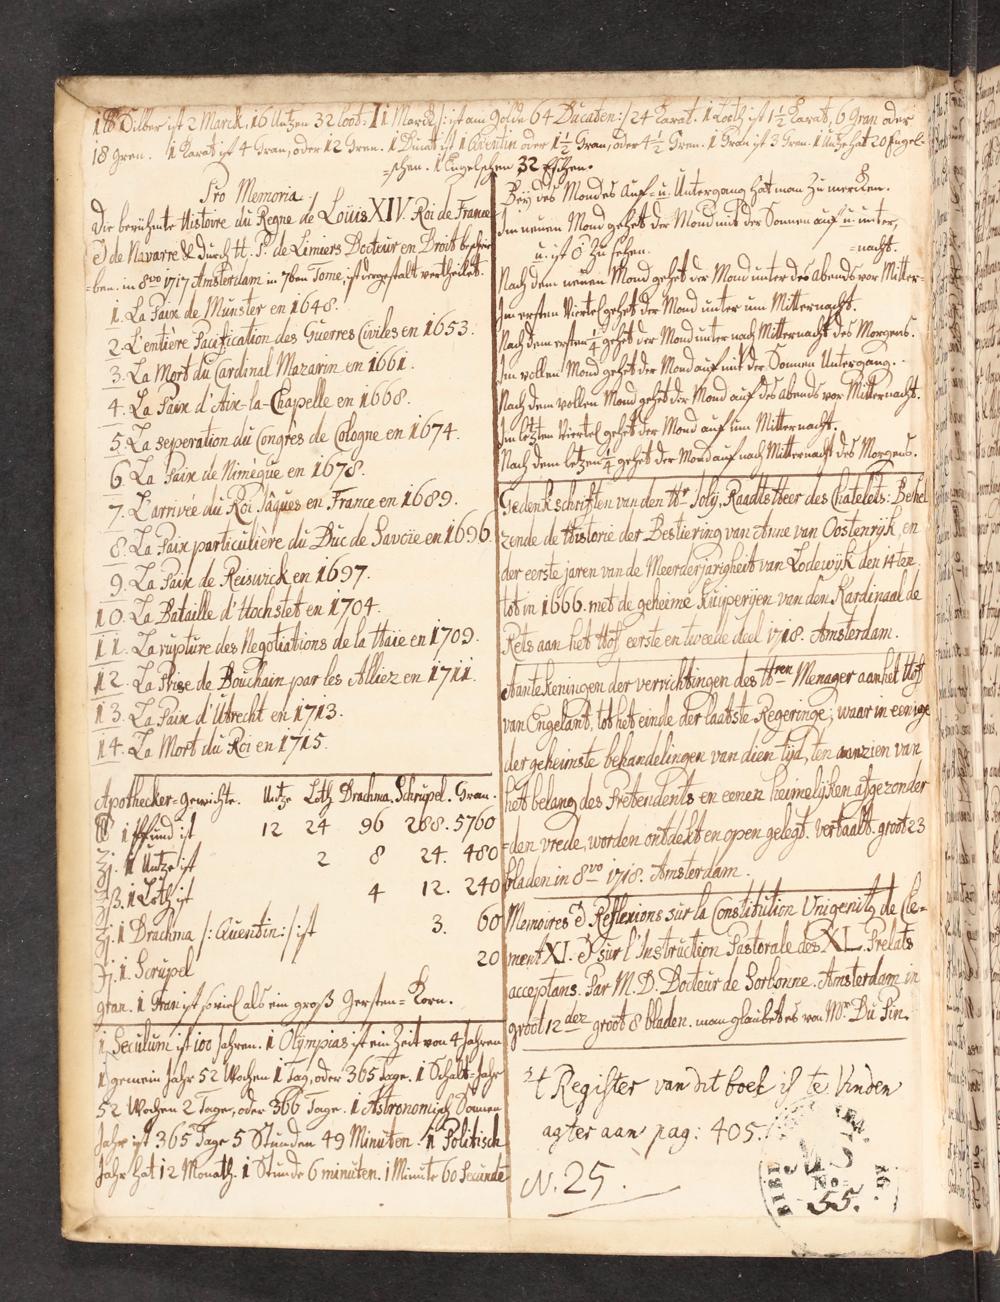 1 ℔ Silber ist 2 Marck, 16 Untzen 32 loot. 1 Marck /: ist am golde 64 Ducaten:/ 24 Karat. 1 Loth ist 1½ Karat, 6 Gran oder
18 Gren. 1 Karat ist 4 Gran, oder 12 Gren. 1 Ducat ist 1 Quentin oder 1½ Gran, oder 4½ Gren. 1 Gran ist 3 Gren. 1 Untze hat 20 Engel-
=schen. 1 Engelschen 32 Esschen.
Pro Memoria
die berühmte Histoire du Regne de Louis XIV. Roi de France
& de Navarre & durch H. P. de Limiers Docteur en Droit beschrie
=ben. in 8vo 1717 Amsterdam in 7ben Tome, ist dergestalt vertheilet.
1. La Paix de Munster en 1648.
2. L'entière Pacification des Guerres Civiles en 1653.
3. La Mort du Cardinal Mazarin en 1661.
4. La Paix d'Aix-la-Chapelle en 1668.
5. La seperation du Congrès de Cologne en 1674.
6. La Paix de Nimègue en 1678.
7. L'arrivée du Roi Jâques en France en 1689.
8. La Paix particuliere du Duc de Savoie en 1696
9. La Paix de Reiswick en 1697.
10. La Bataille d'Hochstet en 1704.
11. La rupture des Negotiations de la Haie en 1709.
12. La Prise de Bouchain par les Alliez en 1711.
13. La Paix d'Utrecht en 1713.
14. La Mort du Roi en 1715.
Apothecker=Gewichte. Untze Loth Drachma. Schrupel. Gran.
℔ 1 Pfund ist 12 24 96 288. 5760
℥j. 1 Untze ist 2 8 24. 480
℥ß. 1 Loth ist 4 12. 240
ʒj. 1 Drachma /: Quentin:/ ist 3. 60
℈j. 1. Scrupel 20
gran. 1 Gran ist so viel als ein groß Gersten=Korn.
1 Seculum ist 100 Jahren. 1 Olympias ist ein Zeit von 4 Jahren
1 gemein Jahr 52 Wochen 1 Tag, oder 365 Tage. 1 Schalt=Jahr
52 Wochen 2 Tage, oder 366 Tage. 1 Astronomisch Sonnen
Jahr ist 365 Tage 5 Stunden 49 Minuten. 1 Politisch
Jahr hat 12 Monath. 1 Stunde 6 minuten. 1 Minute 60 Secunde
Bey des Mondes Auf= u. Untergang hat man zu mercken.
Im neuen Mond gehet der Mond mit der Sonnen auf u. unter,
u. ist 0 zu sehen.
=nacht.
Nach dem neuen Mond gehet der Mond unter des abends vor Mitter-
Im ersten Viertel gehet der Mond unter um Mitternacht.
Nach dem ersten ¼ gehet der Mond unter nach Mitternacht des Morgens.
Im vollen Mond gehet der Mond auf mit der Sonnen Untergang.
Nach dem vollen Mond gehet der Mond auf des Abends vor Mitternacht.
Im letzten Viertel gehet der Mond auf um Mitternacht.
Nach dem letzen ¼ gehet der Mond auf nach Mitternacht des Morgens.
Gedenkschriften van den Hr. Joly, Raadts Heer des Chatelets: Behel
zende de Historie der Bestiering van Anne van Oostenryk, en
der eerste jaren van de Meerderjarigheit van Lodewyk den 14ten
tot in 1666. met de geheime Kuyperyen van den Kardinaal de
Rets aan het Hof eerste en tweede deel 1718. Amsterdam.
Aantekeningen der verrichtingen des Hren Menager aan het Hof
van Engelant, tot het einde der laatste Regeringe; waar in eenige
der geheimste behandelingen van dien tijd, ten aanzien van
het belang des Pretendents en eenen heimelijken afgezonder
=den vrede, worden ontdekt en open gelegt. vertaalt. groot 23
bladen in 8vo 1718. Amsterdam.
Memoires & Reflexions sur la Constitution Unigenitus de Cle=
ment XI. & sur l'Instruction Pastorale des XL. Prelats
acceptans. Par M. D. Docteur de Sorbonne. Amsterdam in
groot 12dez groot 8 bladen. man glaubet es von Mr. Du Pin.
't Register van dit boek is te vinden
agter aan pag: 405.
N. 25.
BIBL
No.
55.